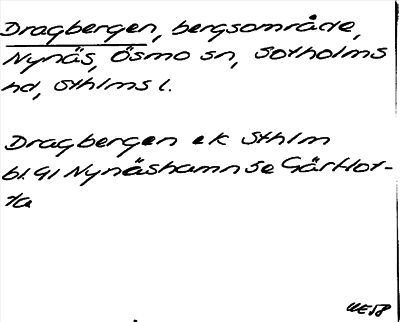 Dragbergen, bergsområde,
Nynäs, Ösmo sn, Sotholms
hd, Sthlms l.
Dragbergen ek Sthlm
bl. 91 Nynäshamn Se Gärtlot-
ta